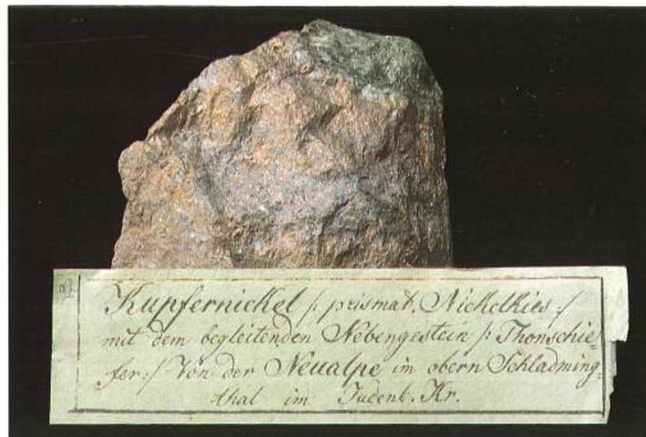 Kupfernickel /: prismat. Nickelkies :/
mit dem begleitenden Nebengestein /: Thonschie-
fer :/ Von der Neualpe im obern Schladming-
thal im Judenb. Kr.